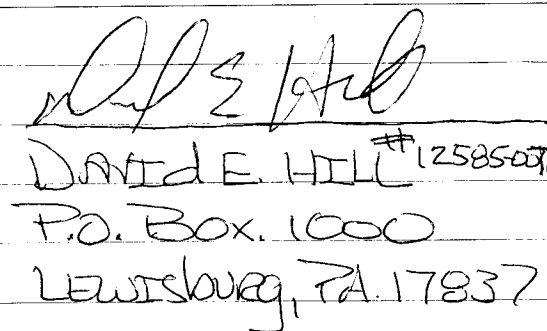 David E Hill
DAVId E. HILL #12585-007
P.O. BOX. 1000
LEWISbURg, PA. 17837